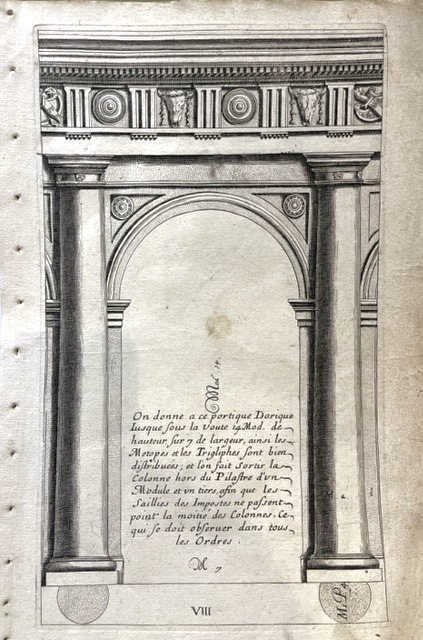 Mod. 14.
On donne a ce portique Dorique
Iusque sous la Voute 14 Mod. de
hauteur, sur 7 de largeur, ainsi les
Metopes et les Trigliphes sont bien
distribuees; et lon fait Sortir la
Colonne hors du Pilastre d'vn
Module et vn tiers, afin que les
Saillies des Impostes ne passent
point la moitie des Colonnes. Ce
qui se doit obseruer dans tous
les Ordres.
M 7
VIII
M. P. 4